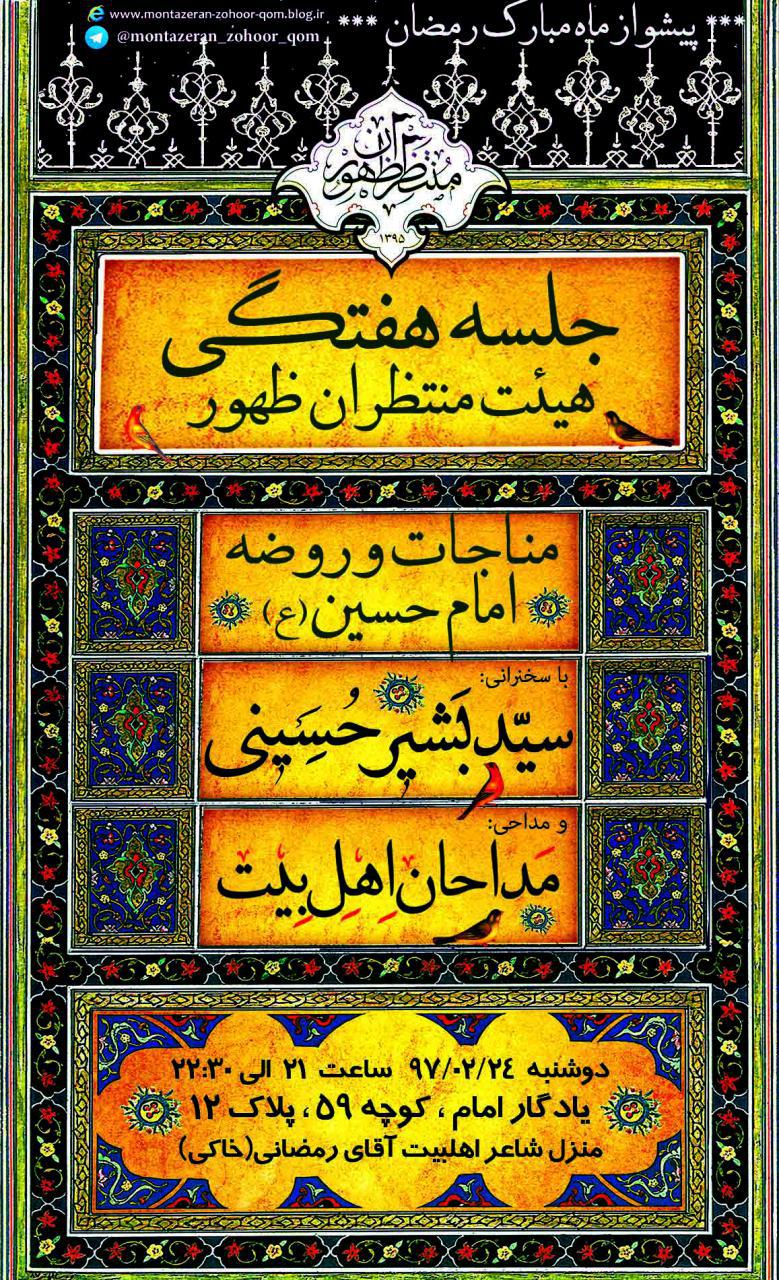 *** پیشواز ماه مبارک رمضان ***
www.montazeran-zohoor-qom.blog.ir
@montazeran_zohoor_qom
منتظران ظهور
۱۳۹۵
جلسه هفتگی
هیئت منتظران ظهور
مناجات و روضه
امام حسین (ع)
با سخنرانی:
سیّد بَشیر حُسِینی
و مداحی:
مَداحان اِهلِ بِیت
دوشنبه ۹۷/۰۲/۲۴ ساعت ۲۱ الی ۲۲:۳۰
یادگار امام ، کوچه ۵۹ ، پلاک ۱۲
منزل شاعر اهلبیت آقای رمضانی(خاکی)